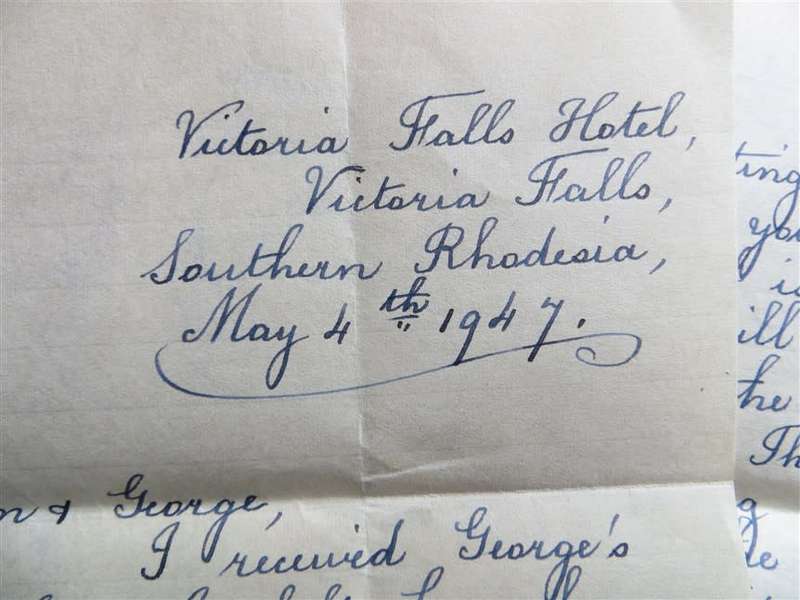 Victoria Falls Hotel,
Victoria Falls,
Southern Rhodesia,
May 4th 1947.
n & George,
I received George's
ting
you
ill
he
Th
g